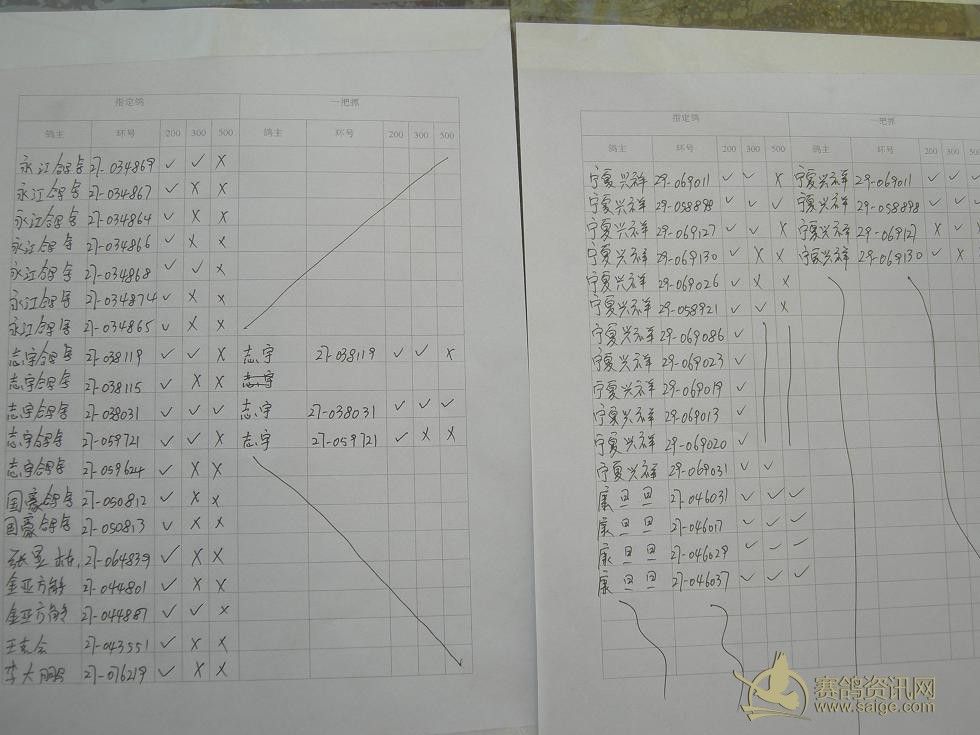 指定鸽 一把抓
鸽主 环号 200 300 500 鸽主 环号 200 300 500
永江鸽舍 27-034869 ✓ ✓ ×
永江鸽舍 27-034867 ✓ × ×
永江鸽舍 27-034864 ✓ × ×
永江鸽舍 27-034866 ✓ × ×
永江鸽舍 27-034868 ✓ ✓ ×
永江鸽舍 27-034874 ✓ × ×
永江鸽舍 27-034865 ✓ × ×
志宇鸽舍 27-038119 ✓ ✓ × 志宇 27-038119 ✓ ✓ ×
志宇鸽舍 27-038115 ✓ × × 志宇
志宇鸽舍 27-038031 ✓ ✓ ✓ 志宇 27-038031 ✓ ✓ ✓
志宇鸽舍 27-059721 ✓ ✓ × 志宇 27-059721 ✓ × ×
志宇鸽舍 27-059624 ✓ × ×
国豪鸽舍 27-050812 ✓ × ×
国豪鸽舍 27-050813 ✓ × ×
27-064839 ✓ × ×
金亚方 27-044801 ✓ × ×
金亚方 27-044887 ✓ ✓ ×
27-043551 ✓ × ×
李大鹏 27-076219 ✓ × ×
指定鸽 一把抓
鸽主 环号 200 300 500 鸽主 环号 200 300
宁夏兴祥 29-069011 ✓ ✓ × 宁夏兴祥 29-069011 ✓ ✓ ✓
宁夏兴祥 29-058898 ✓ ✓ ✓ 宁夏兴祥 29-058898 ✓ ✓ ✓
宁夏兴祥 29-069127 ✓ ✓ × 宁夏兴祥 29-069127 × ✓ ×
宁夏兴祥 29-069130 ✓ × × 宁夏兴祥 29-069130 ✓ × ×
宁夏兴祥 29-069026 ✓ × ×
宁夏兴祥 29-058921 ✓ ✓ ×
宁夏兴祥 29-069086 ✓
宁夏兴祥 29-069023 ✓
宁夏兴祥 29-069019 ✓
宁夏兴祥 29-069013 ✓
宁夏兴祥 29-069020 ✓
宁夏兴祥 29-069031 ✓ ✓
康旦旦 27-046031 ✓ ✓ ✓
康旦旦 27-046017 ✓ ✓ ✓
康旦旦 27-046029 ✓ ✓ ✓
康旦旦 27-046037 ✓ ✓ ✓
赛鸽资讯网
www.saige.com